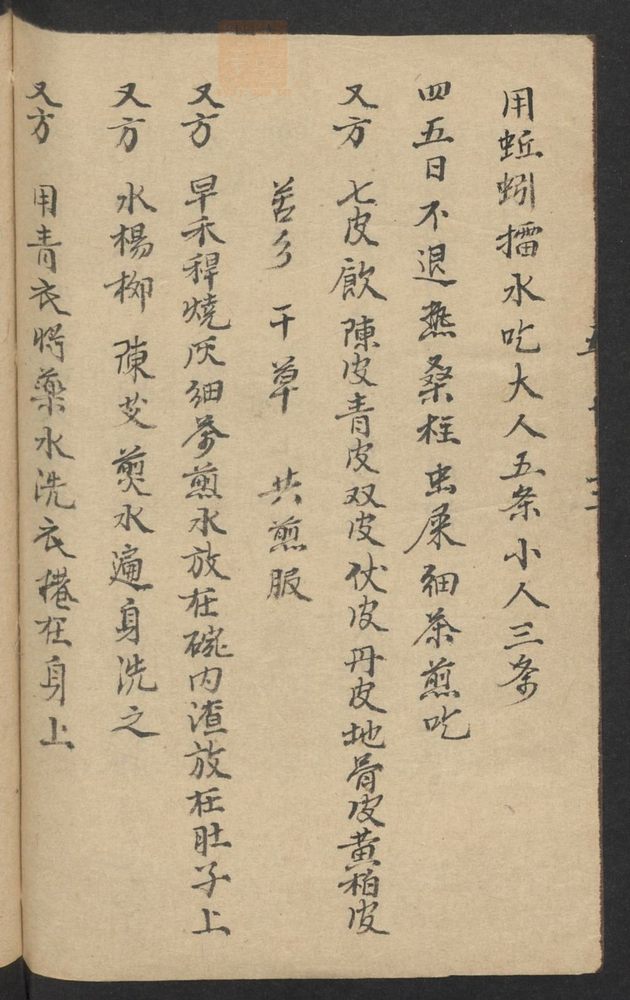 用蚯蚓擂水吃大人五条小人三条
四五日不退热桑柱虫屎细茶煎吃
又方 七皮飲陳皮青皮双皮伏皮丹皮地骨皮黄柏皮
干草 共煎服
又方 早禾稈燒灰细茶煎水放在碗内渣放在肚子上
又方 水楊柳 陳艾煎水遍身洗之
又方 用青衣将藥水洗衣捲在身上